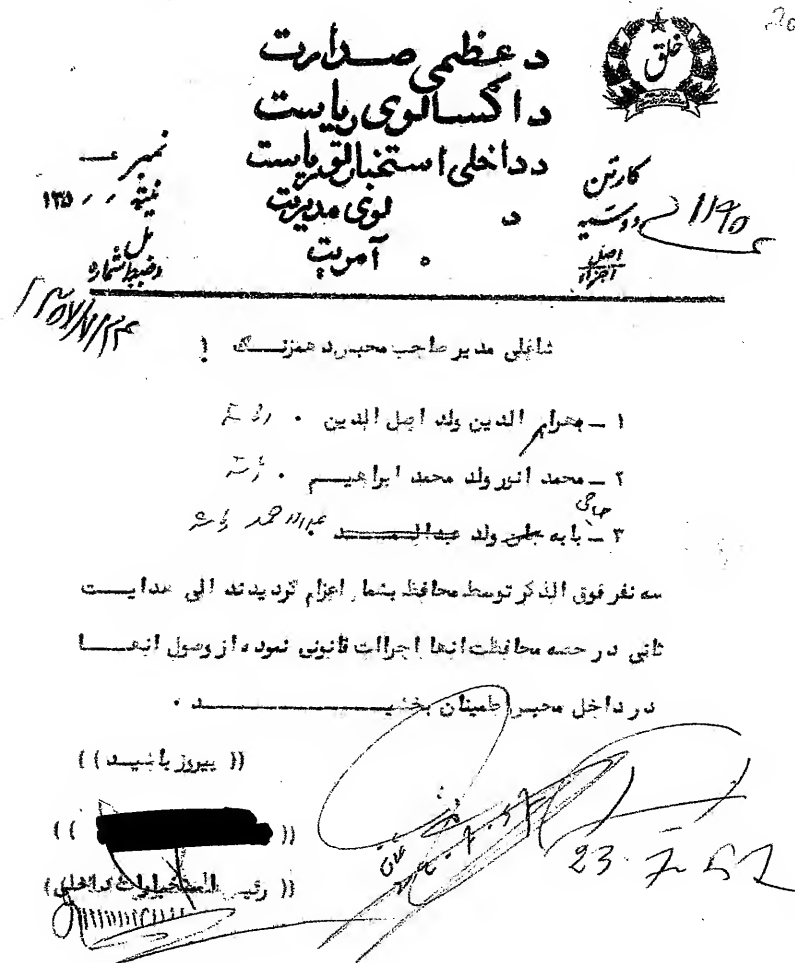 خلق
د عظمی صدارت
د اکسا لوی ریاست
د داخلی استخباراتو ریاست
د لوی مدیریت
د آمریت
نمبر
نیټه / / ۱۳۵
کارتن
دوسیه
۱۱۹۵
اصل
اجزاء
شاغلی مدیر صاحب محبس دهمزنگ !
۱ ـ بهرام الدین ولد اصل الدین .
۲ ـ محمد انور ولد محمد ابراهیم .
حاجی
۳ ـ بابه جان ولد عبدالصمد عبدالاحمد
سه نفر فوق الذکر توسط محافظ بشما اعزام گردیدند الی هدایت
ثانی در حصه محافظت انها اجراات قانونی نموده از وصول انها
در داخل محبس اطمینان بخشید .
(( پیروز باشید ))
(( ))
(( رئیس استخبارات داخلی ))
23-7-57